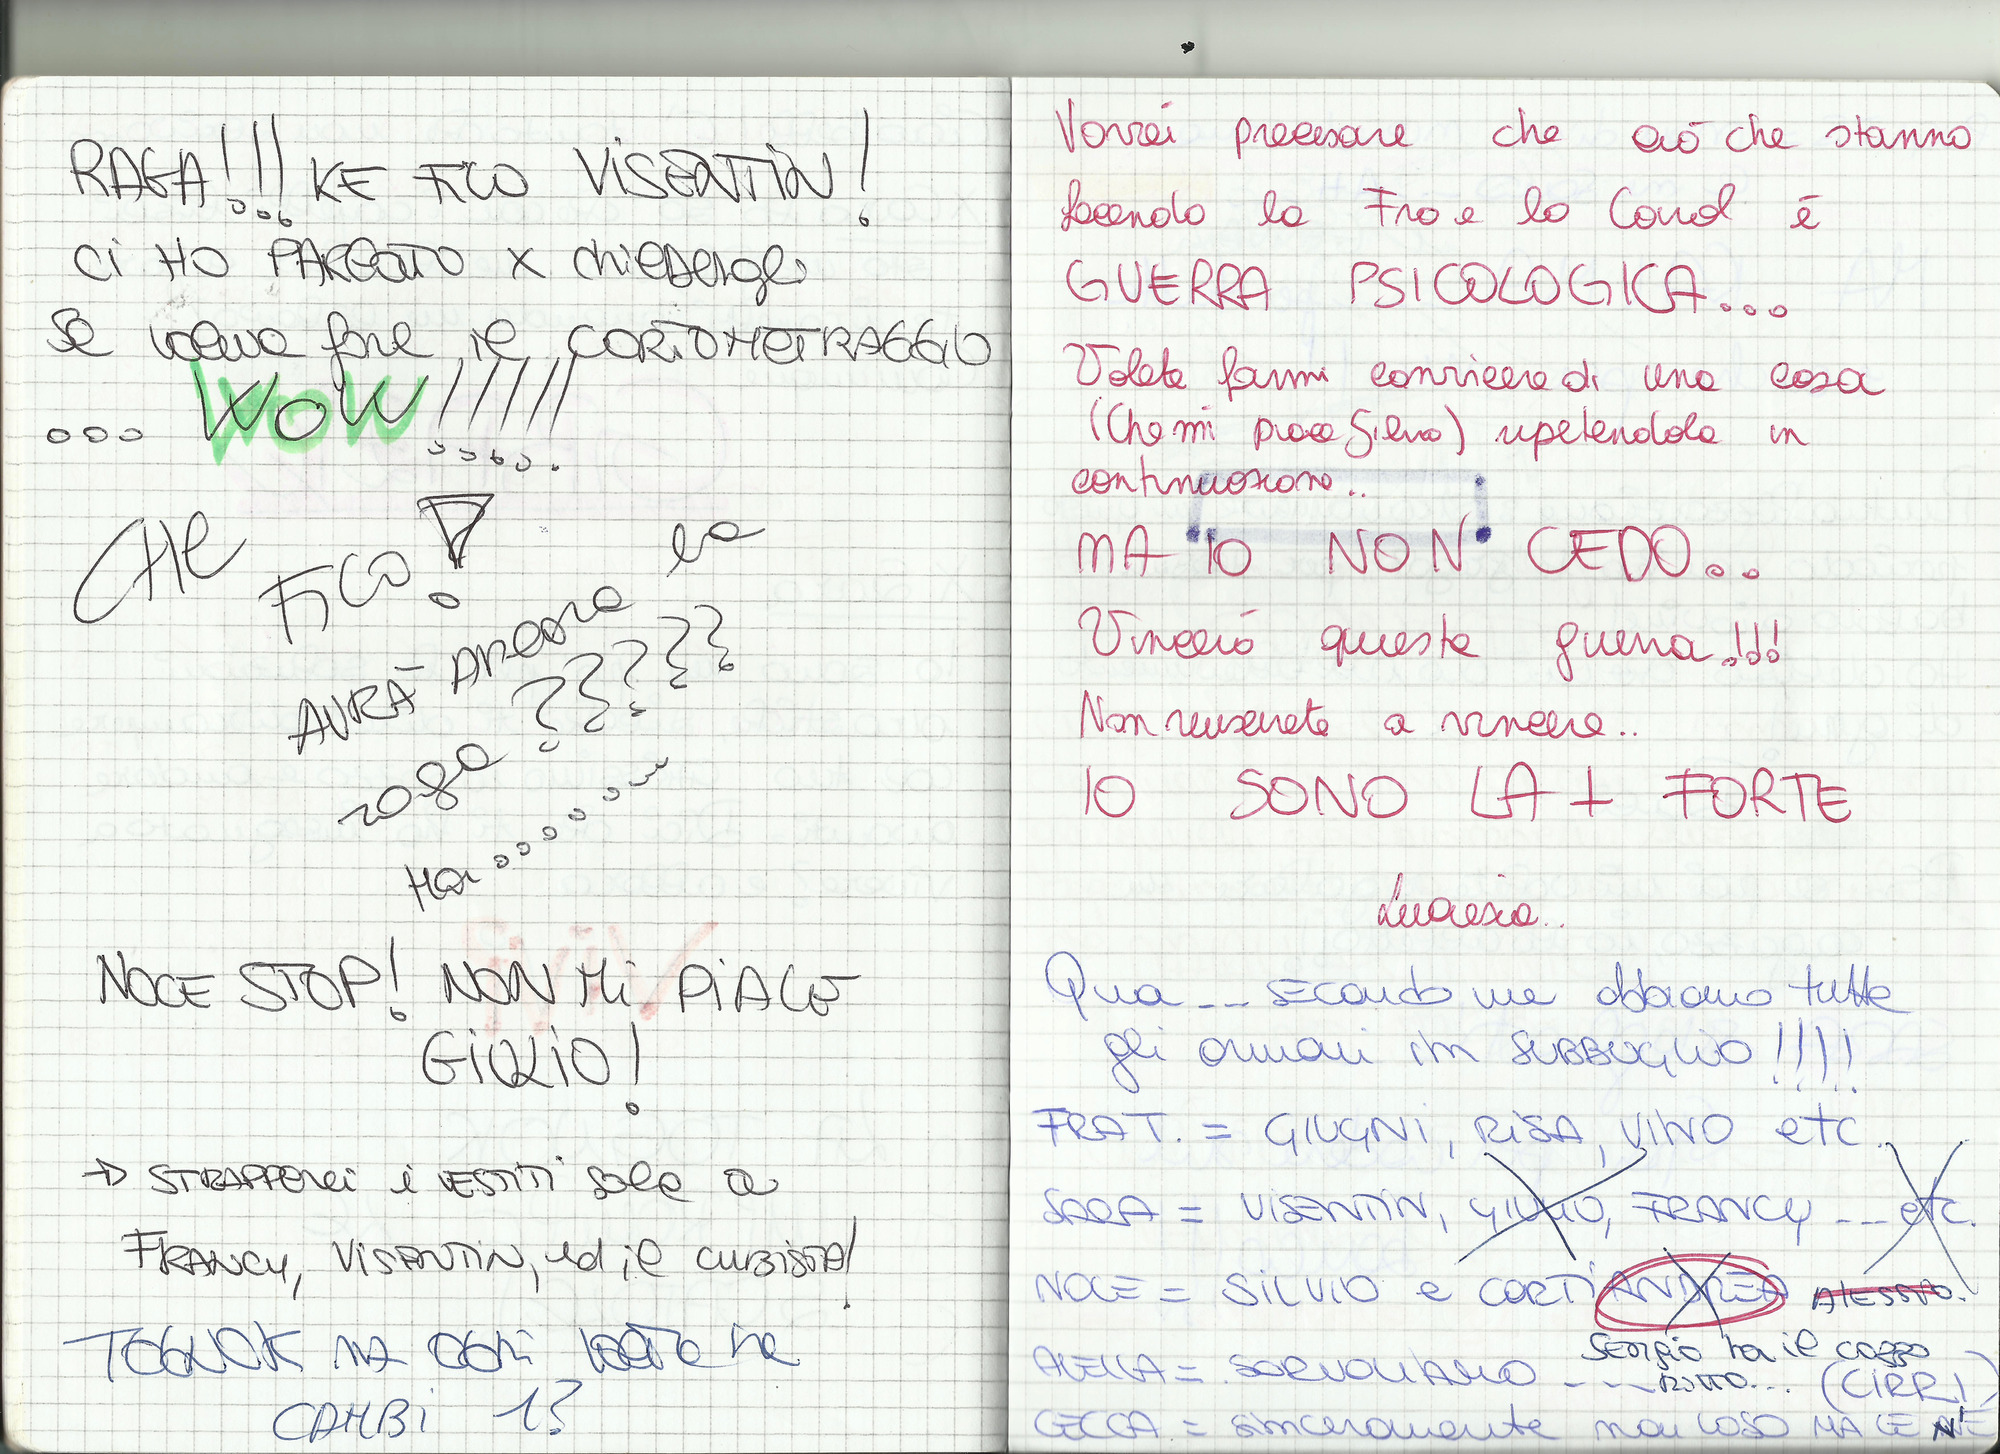 RAGA!!! KE FICO VISENTIN!
CI HO PARLATO X chiedergli
Se voleva fare il CORTOMETRAGGIO
... WOW!!!!!
CHE FICO!
AURÀ ancora la
roga ?????
Hai.......
NOCE STOP! NON Mi PIACE
GIULIO!
→ STRAPPEREI i VESTITI SOLO a
FRANCY, VISENTIN, ed il CUBISTA!
MA OGNI VOLTA NE
CAMBI 13
Vorrei precisare che ciò che stanno
facendo la Fra e la Cord è
GUERRA PSICOLOGICA...
Volete farmi convincere di una cosa
(Che mi piace Silvio) ripetendola in
continuazione..
MA IO NON CEDO..
Vincerò questa guerra!!!
Non riuscirete a vincere..
IO SONO LA + FORTE
Lucrezia..
Qua -- secondo me abbiamo tutte
gli ormoni in SUBBUGLIO!!!!
FRAT. = GIUGNI, RISA, VINO etc.
SARA = VISENTIN, GIULIO, FRANCY --- etc.
NOCE = SILVIO e CORTI ANDREA ALESSIO.
Sergio ha il cazzo
ROTTO...
= SORVOLIAMO ---- (CIRRI)
CECCA = sinceramente non LOSO MA CE N'È